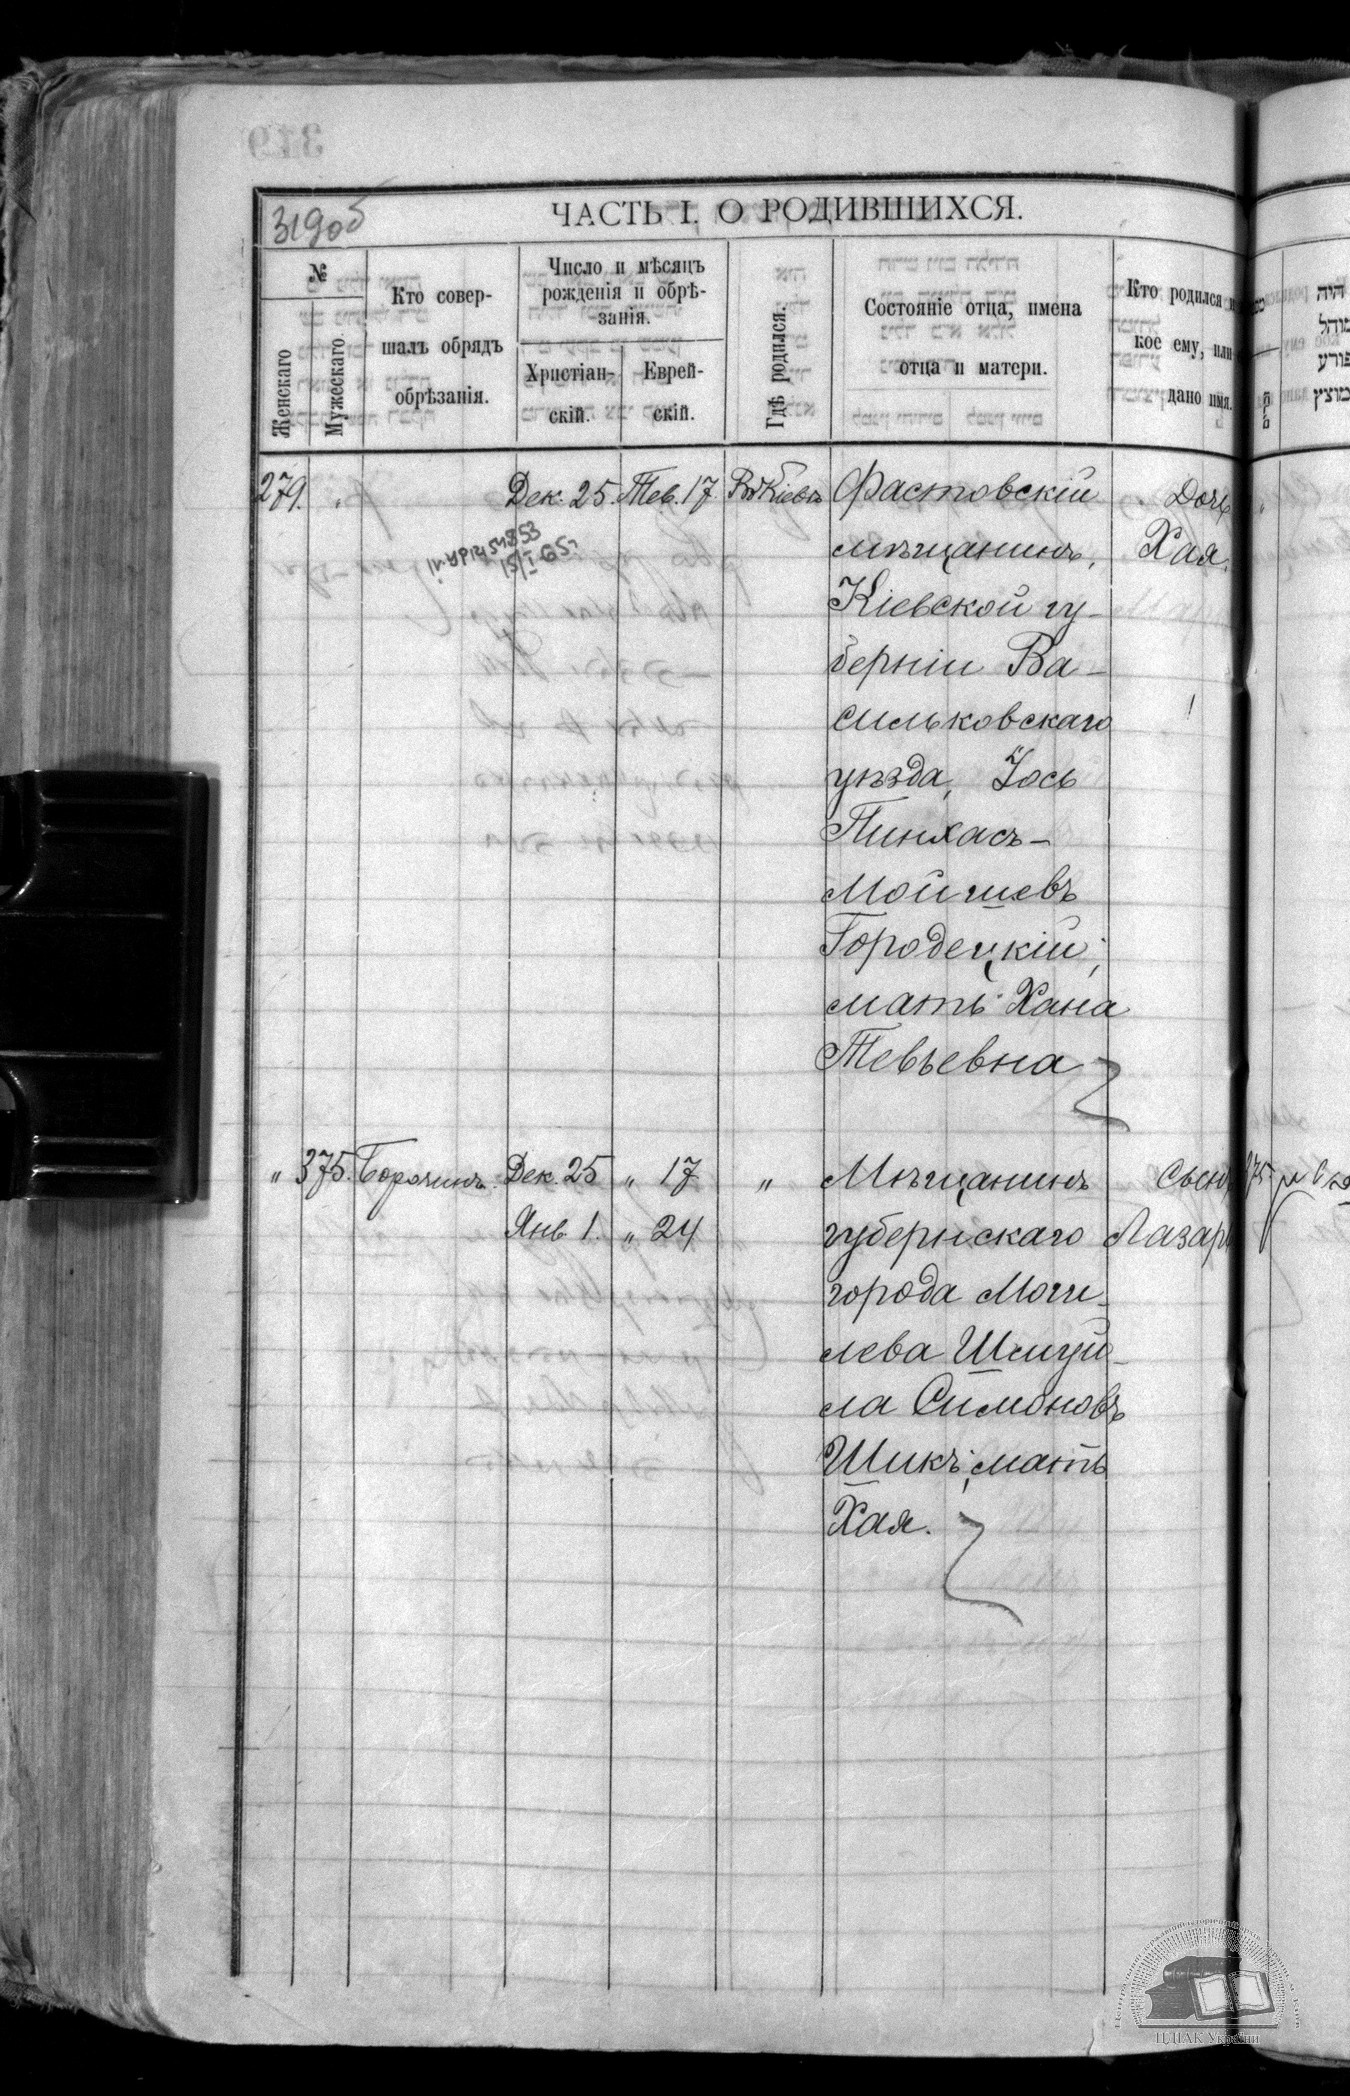 319об
ЧАСТЬ I. О РОДИВШИХСЯ.
№
Женскаго
Мужескаго.
Кто совер-
шалъ обрядъ
обрѣзанія.
Число и мѣсяцъ
рожденія и обрѣ-
занія.
Христіан-
скій.
Еврей-
скій.
Гдѣ родился.
Состояніе отца, имена
отца и матери.
Кто родился и
кое ему, или
дано имя.
279. " Дек. 25. Тев. 17. Въ Кіевѣ Фастовскій Дочь
мѣщанинъ, Хая.
Кіевской гу-
берніи Ва-
сильковскаго
уѣзда, Іось
Пинхасъ-
Мойшевъ
Городецкій;
мать Хана
Тевьевна
" 375. Борочинъ. Дек. 25 " 17 " Мѣщанинъ Сынъ
Янв. 1. " 24 губернскаго Лазарь
города Моги-
лева Шмуй-
ла Симоновъ
Шикъ; мать
Хая.
היה
מוהל
פורע
מוצץ
375
ЦДІАК України